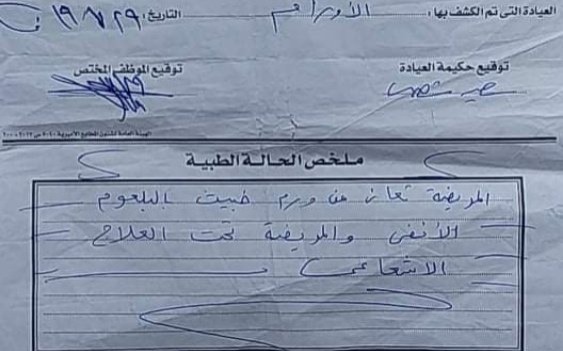 العيادة التى تم الكشف بها: الأورام التاريخ:
توقيع حكيمة العيادة توقيع الموظف المختص
ملخص الحالة الطبية
المريضة تعانى من ورم خبيث بالبلعوم
الأنفى والمريضة تحت العلاج
الاشعاعى